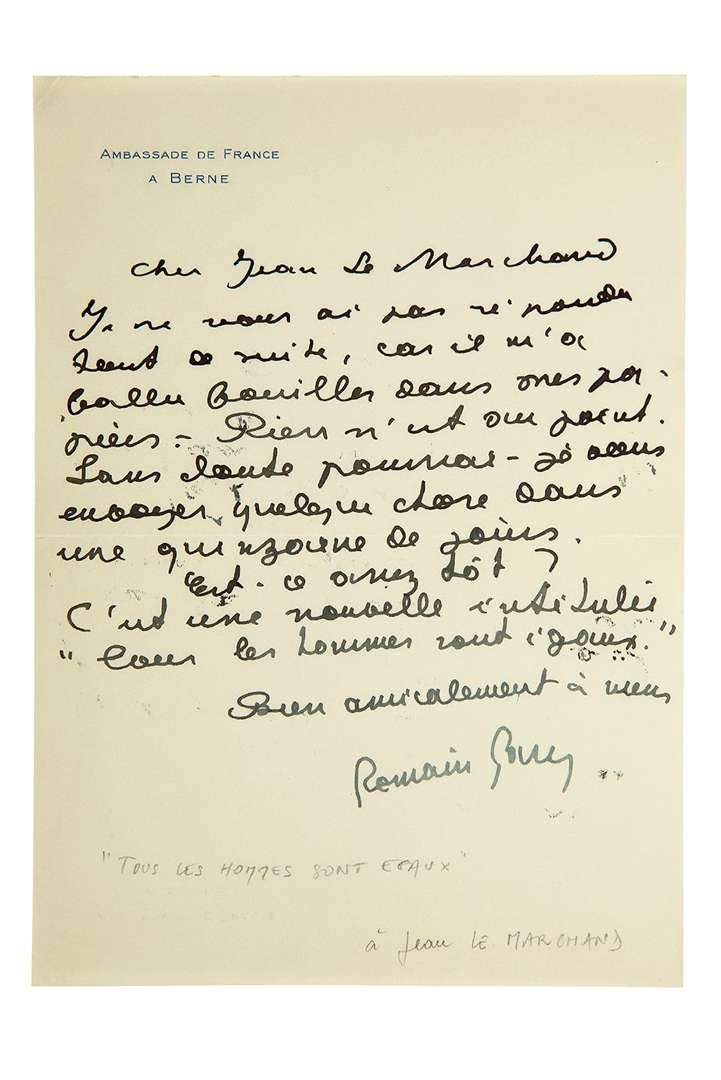 AMBASSADE DE FRANCE
A BERNE
Cher Jean Le Marchand
Je ne vous ai pas répondu
tout de suite, car il m'a
fallu fouiller dans mes pa-
piers - Rien n'est au point.
Sans doute pourrai-je vous
envoyer quelque chose dans
une quinzaine de jours.
Est-ce assez tôt ?
C'est une nouvelle intitulée
"Tous les hommes sont égaux."
Bien amicalement à vous
Romain Gary
"TOUS LES HOMMES SONT EGAUX"
à Jean LE MARCHAND